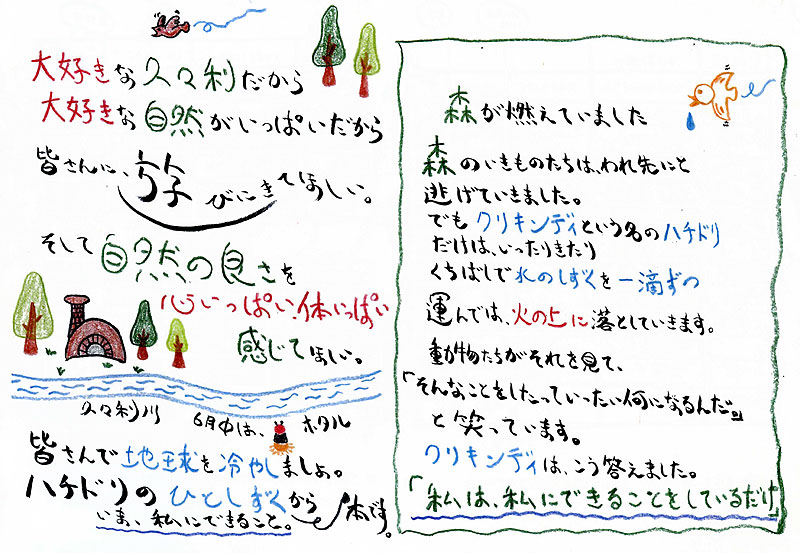 大好きな久々利だから
大好きな自然がいっぱいだから
皆さんに、遊びにきてほしい。
そして自然の良さを
心いっぱい、体いっぱい
感じてほしい。
久々利川
6月中は、ホタル
皆さんで地球を冷やしましょ。
ハチドリのひとしずくから
いま、私にできること。
本です。
森が燃えていました
森のいきものたちは、われ先にと
逃げていきました。
でもクリキンディという名のハチドリ
だけは、いったりきたり
くちばしで水のしずくを一滴ずつ
運んでは、火の上に落としていきます。
動物たちがそれを見て、
「そんなことをしたっていったい何になるんだ。」
と笑っています。
クリキンディは、こう答えました。
「私は、私にできることをしているだけ」